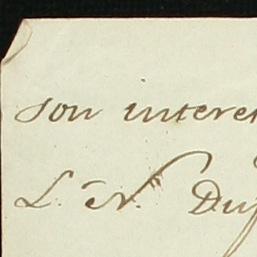 son interet
L. N. Du